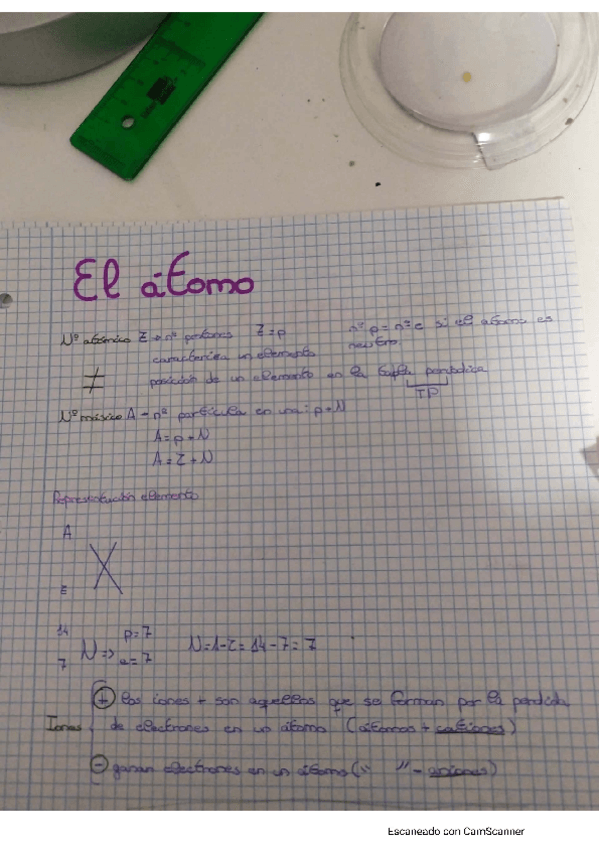 El átomo
Nº atómico Z → nº protones Z = p nº p = nº e si el átomo es
neutro
caracteriza un elemento
≠ posición de un elemento en la tabla periódica
TP
Nº másico A → nº partículas en : p + N
A = p + N
A = Z + N
Representación elemento
A
X
Z
14
7 N => p = 7
e = 7
N = A - Z = 14 - 7 = 7
Iones
+ los iones + son aquellos que se forman por la perdida
de electrones en un átomo (átomos + cationes)
- ganan electrones en un átomo (" " - aniones)
Escaneado con CamScanner